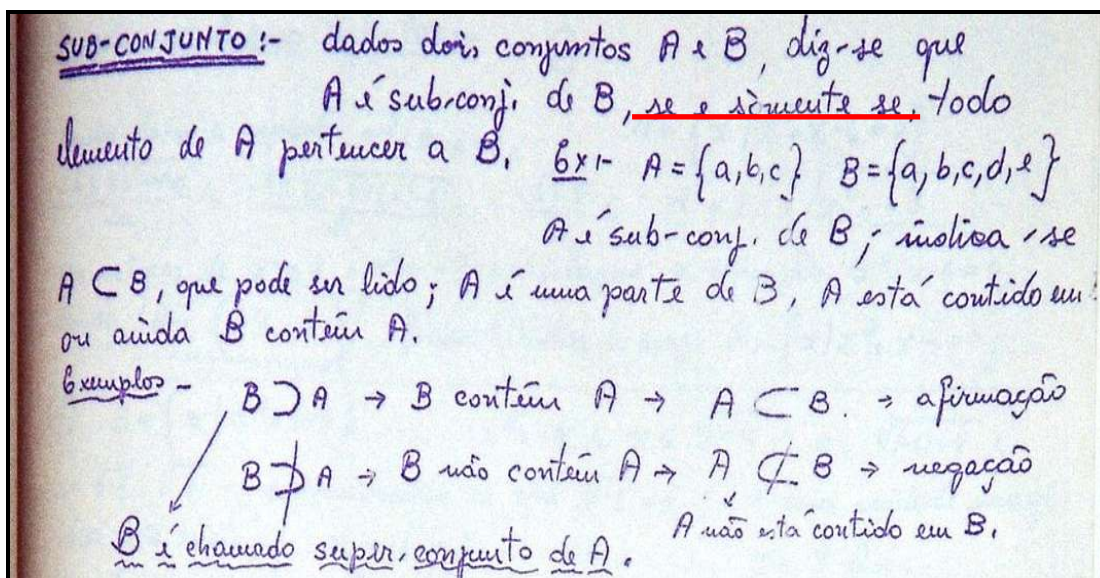 SUB-CONJUNTO:- dados dois conjuntos A e B, diz-se que
A é sub-conj. de B, se e sòmente se, todo
elemento de A pertencer a B. Ex:- A = {a,b,c} B = {a,b,c,d,e}
A é sub-conj. de B; indica-se
A ⊂ B, que pode ser lido; A é uma parte de B, A está contido em
ou ainda B contém A.
Exemplos - B ⊃ A → B contém A → A ⊂ B. → afirmação
B ⊅ A → B não contém A → A ⊄ B → negação
A não está contido em B.
B é chamado super-conjunto de A.